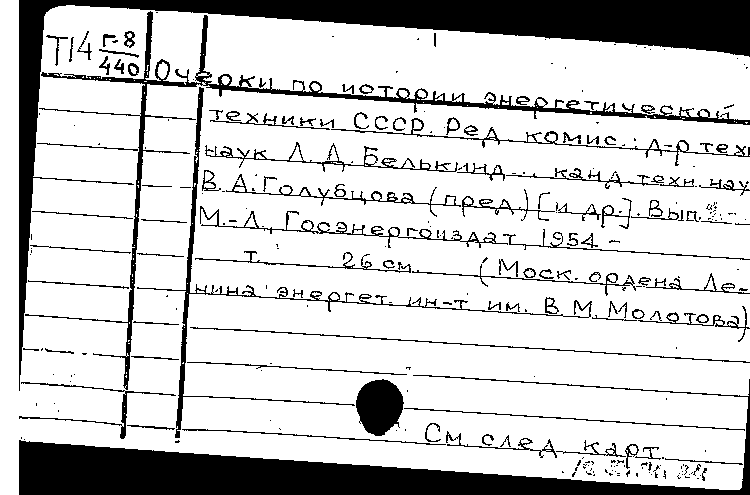 Т14 Г-8
440
Очерки по истории энергетической
техники СССР. Ред. комис.: д-р техн
наук Л. Д. Белькинд... канд. техн. нау
В. А. Голубцова (пред.) [и др.]. Вып.
М.-Л., Госэнергоиздат, 1954 -
т. 26 см. (Моск. ордена Ле-
нина энергет. ин-т им. В. М. Молотова)
См. след. карт.